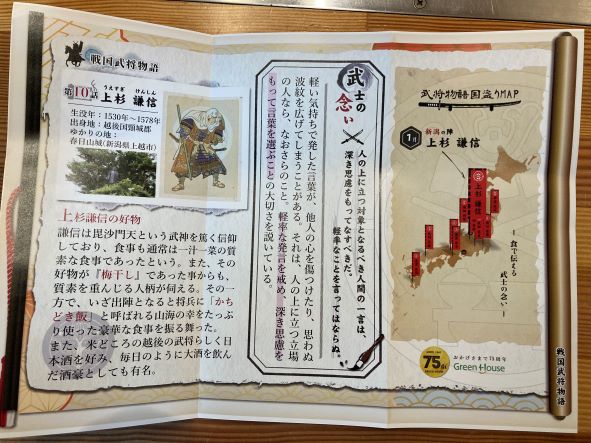 戦国武将物語
第10話
うえすぎ けんしん
上杉 謙信
生没年：1530年～1578年
出身地：越後国頸城郡
ゆかりの地：
春日山城(新潟県上越市)
上杉謙信の好物
謙信は毘沙門天という武神を篤く信仰
しており、食事も通常は一汁一菜の質
素な食事であったという。また、その
好物が『梅干し』であった事からも、
質素を重んじる人柄が伺える。その一
方で、いざ出陣となると将兵に「かち
どき飯」と呼ばれる山海の幸をたっぷ
り使った豪華な食事を振る舞った。
また、米どころの越後の武将らしく日
本酒を好み、毎日のように大酒を飲ん
だ酒豪としても有名。
武士の念い
人の上に立つ対象となるべき人間の一言は、
深き思慮をもってなすべきだ。
軽率なことを言ってはならぬ。
軽い気持ちで発した言葉が、他人の心を傷つけたり、思わぬ
波紋を広げてしまうことがある。それは、人の上に立つ立場
の人なら、なおさらのこと。軽率な発言を戒め、深き思慮を
もって言葉を選ぶことの大切さを説いている。
武将物語国盗りMAP
1月
新潟の陣
上杉 謙信
上杉謙信
― 食で伝える
武士の念い ―
75th
おかげさまで75周年
Green House
戦国武将物語